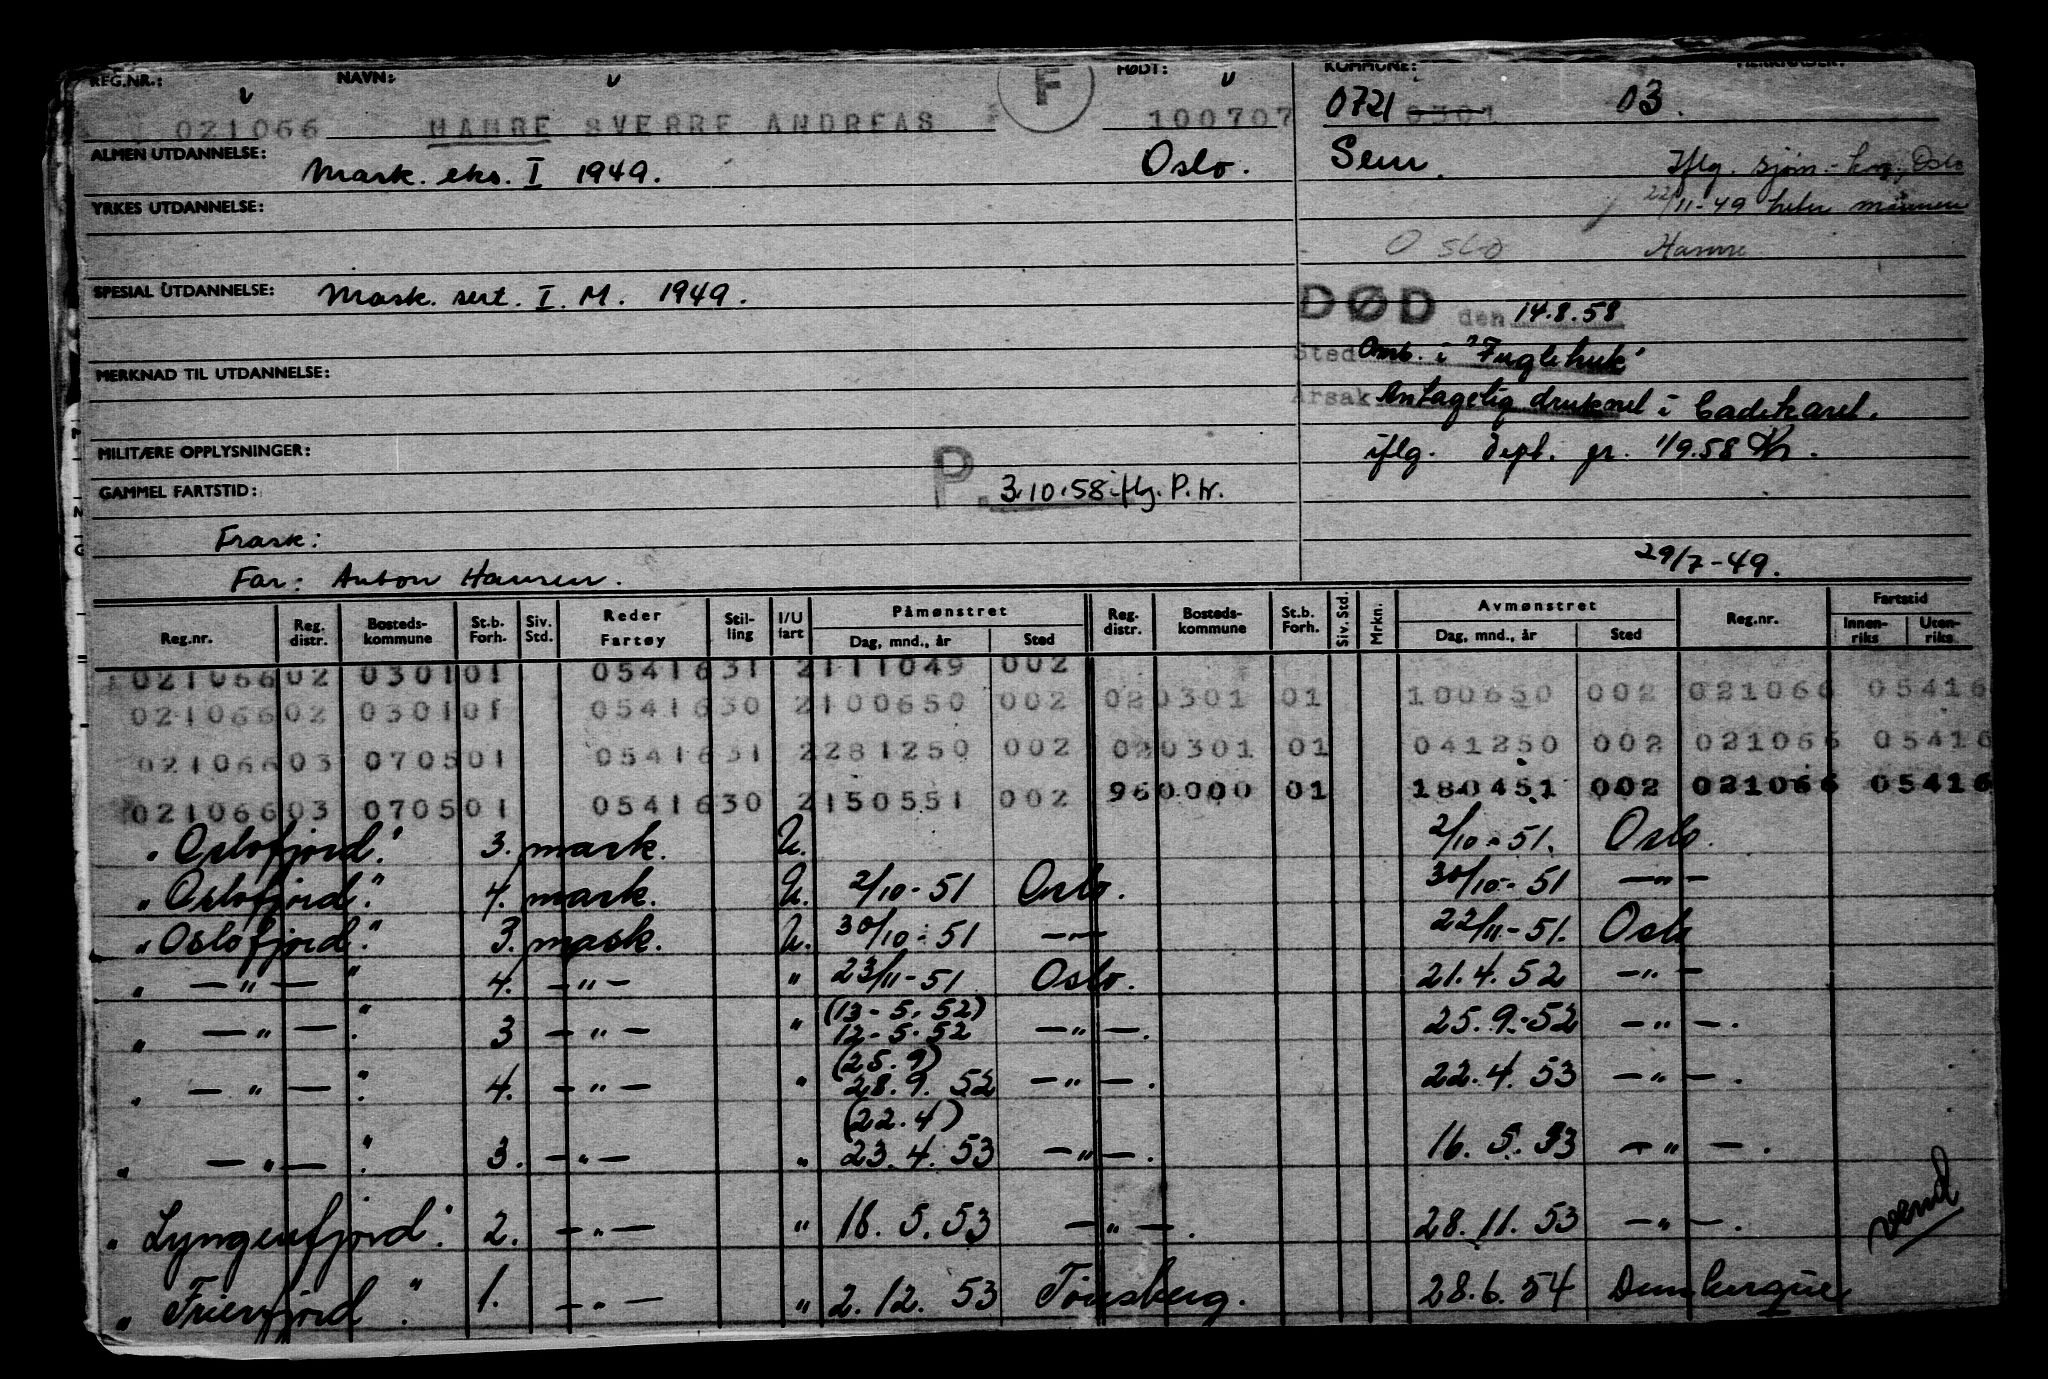 REG.NR.: NAVN: F FØDT: KOMMUNE: MERKNADER:
021066 HAMRE SVERRE ANDREAS 100707 0721 0301 03.
ALMEN UTDANNELSE: Mask. eks. I 1949. Oslo. Sem. Iflg. sjøm.-kng., Oslo
YRKES UTDANNELSE: 22/11-49 heter mannen
Oslo Hamre
SPESIAL UTDANNELSE: Mask. sert. I. M. 1949. DØD den 14.8.58
Sted Omb. i "Fuglehuk"
MERKNAD TIL UTDANNELSE: Årsak Antagelig druknet i badekaret.
MILITÆRE OPPLYSNINGER: iflg. Dept. gr. 1/9.58
GAMMEL FARTSTID: P. 3.10.58 iflg. P.tr.
Frask:
29/7-49.
Far: Anton Hansen.
Reg.nr. Reg. distr. Bosteds- kommune St.b. Forh. Siv. Std. Reder Fartøy Stil- ling I/U fart Påmønstret Dag, mnd., år Sted Reg. distr. Bosteds- kommune St.b. Forh. Siv. Std. Mrkn. Avmønstret Dag, mnd., år Sted Reg.nr. Fartstid Innen- riks Uten- riks
021066 02 0301 01 05416 31 2 111049 002
021066 02 0301 01 05416 30 2 100650 002 02 0301 01 100650 002 021066 05416
021066 03 0705 01 05416 31 2 281250 002 02 0301 01 041250 002 021066 05416
021066 03 0705 01 05416 30 2 150551 002 96 0000 01 180451 002 021066 05416
"Oslofjord". 3. mask. U. 2/10-51. Oslo.
"Oslofjord." 4. mask. U. 2/10-51 Oslo. 30/10-51 —"—
"Oslofjord." 3. mask. U. 30/10-51 —"— 22/11-51. Oslo
" —"— " 4. —"— " 23/11-51 Oslo. 21.4.52 —"—
(13-5.52)
" —"— ". 3 —"— " 12-5-52 —"—. 25.9.-52 —"—.
(25.9)
" —"— ". 4. —"— " 28.9.52 —"—. 22.4.53 —"—.
(22.4)
" —"— ". 3. —"— " 23.4.53 —"—. 16.5.53 —"—.
"Lyngenfjord". 2. —"— " 16.5.53 —"—. 28.11.53 —"—. vend
"Frierfjord". 1. —"— " 2.12.53 Tönsberg. 28.6.54 Dunkerque